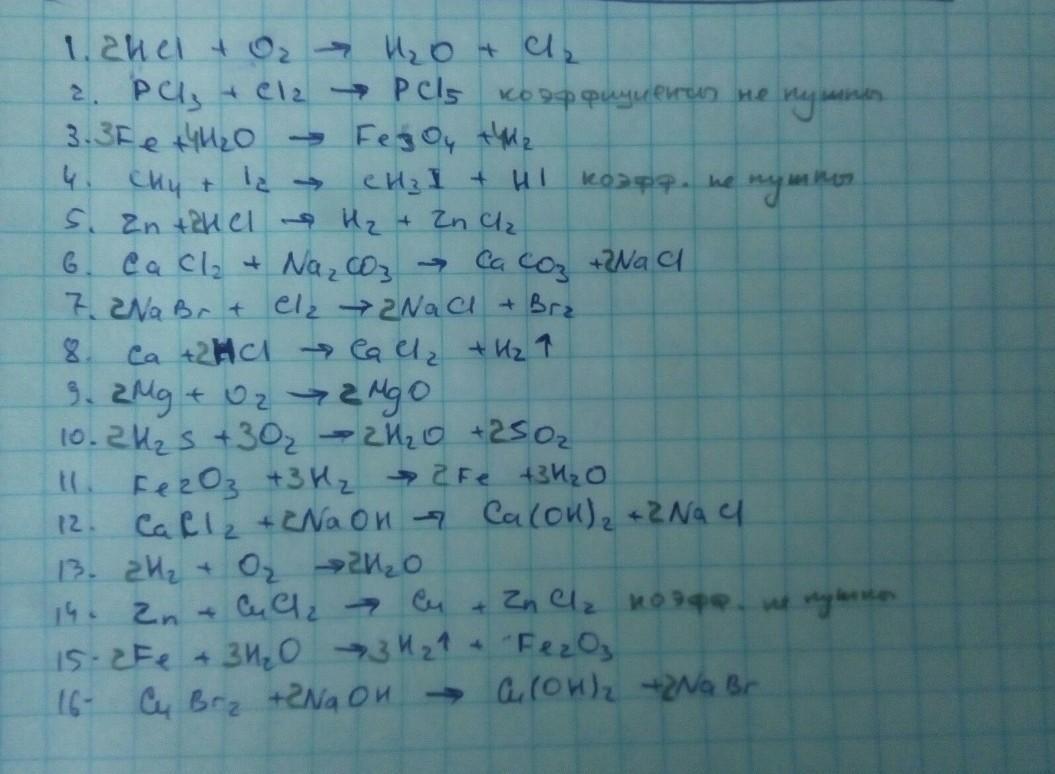 1. 2HCl + O2 → H2O + Cl2
2. PCl3 + Cl2 → PCl5 коэффициенты не нужны
3. 3Fe + 4H2O → Fe3O4 + 4H2
4. CH4 + I2 → CH3I + HI коэфф. не нужны
5. Zn + 2HCl → H2 + ZnCl2
6. CaCl2 + Na2CO3 → CaCO3 + 2NaCl
7. 2NaBr + Cl2 → 2NaCl + Br2
8. Ca + 2HCl → CaCl2 + H2↑
9. 2Mg + O2 → 2MgO
10. 2H2S + 3O2 → 2H2O + 2SO2
11. Fe2O3 + 3H2 → 2Fe + 3H2O
12. CaCl2 + 2NaOH → Ca(OH)2 + 2NaCl
13. 2H2 + O2 → 2H2O
14. Zn + CuCl2 → Cu + ZnCl2 коэфф. не нужны
15. 2Fe + 3H2O → 3H2↑ + Fe2O3
16. CuBr2 + 2NaOH → Cu(OH)2 + 2NaBr